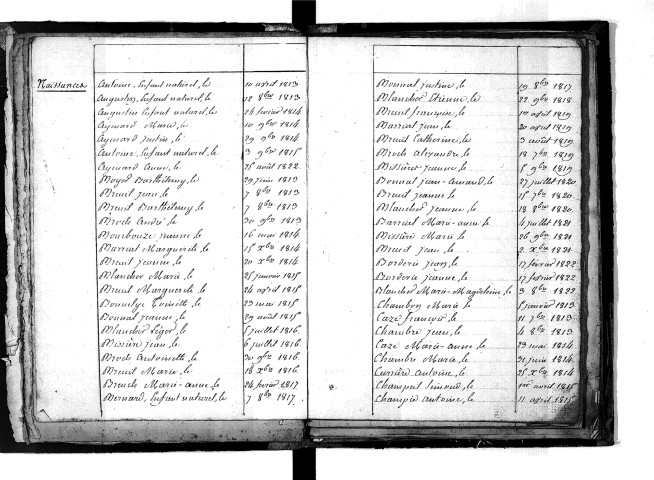 Naissances
Antoine, Enfant naturel, le 10 avril 1813
Augustin, Enfant naturel, le 12 8bre 1813
Augustin Enfant naturel, le 24 fevrier 1814
Aymard Marie, le 10 9bre 1814
Aymard justin, le 29 9bre 1814
Antoine, Enfant naturel, le 3 9bre 1815
Aymard Anne, le 25 août 1822
Boyer Barthélemy, le 29 juin 1813
Breuil jean, le 7 8bre 1813
Breuil Barthélemy, le 7 8bre 1813
Brode André, le 30 9bre 1813
Bourbouze jeanne, le 16 mai 1814
Barreut Marguerite, le 15 Xbre 1814
Breuil jeanne, le 20 Xbre 1814
Blancher Marie, le 25 janvier 1815
Breuil Marguerite, le 24 avril 1815
Toinette, le 23 mai 1815
Bonnal jeanne, le 29 août 1815
Blancher Léger, le 5 juillet 1816
Bissière jean, le 6 juillet 1816
Brode Antoinette, le 30 9bre 1816
Breuil Marie, le 18 Xbre 1816
Breuil Marie-anne, le 24 fevrier 1817
Bernard, Enfant naturel, le 7 8bre 1817
Bonnal justine, le 19 8bre 1817
Blancher Etienne, le 22 9bre 1818
Breuil françois, le 1er avril 1819
Barriat jean, le 20 avril 1819
Breuil Catherine, le 3 août 1819
Brode alexandre, le 18 7bre 1819
Bissière jeanne, le 5 9bre 1819
Bonnal jean-amand, le 27 juillet 1820
Breuil jeanne, le 15 7bre 1820
Blancher jeanne, le 18 8bre 1820
Barriat Marie-anne, le 4 juillet 1821
Bissière Marie, le 26 9bre 1821
Breuil jean, le 2 Xbre 1821
Borderie jean, le 17 fevrier 1822
Borderie jeanne, le 17 fevrier 1822
Blancher Marie-Magdeleine, le 3 8bre 1822
Chambon Marie, le 5 janvier 1813
Caze françois, le 11 7bre 1813
Chambre jean, le 4 8bre 1813
Caze Marie-anne, le 23 mai 1814
Chambre Marie, le 21 juin 1814
Antoine, le 25 Xbre 1814
Champié Simond, le 1er avril 1815
Champié Antoine, le 11 avril 1815